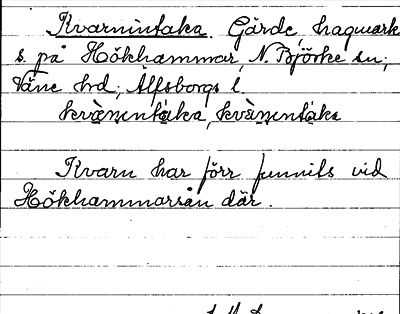 Kvarnintaka. Gärde, hagmark
s. på Hökhammar, N. Björke sn;
Väne hd; Älfsborgs l.
Kvarn har förr funnits vid
Hökhammarsån där.